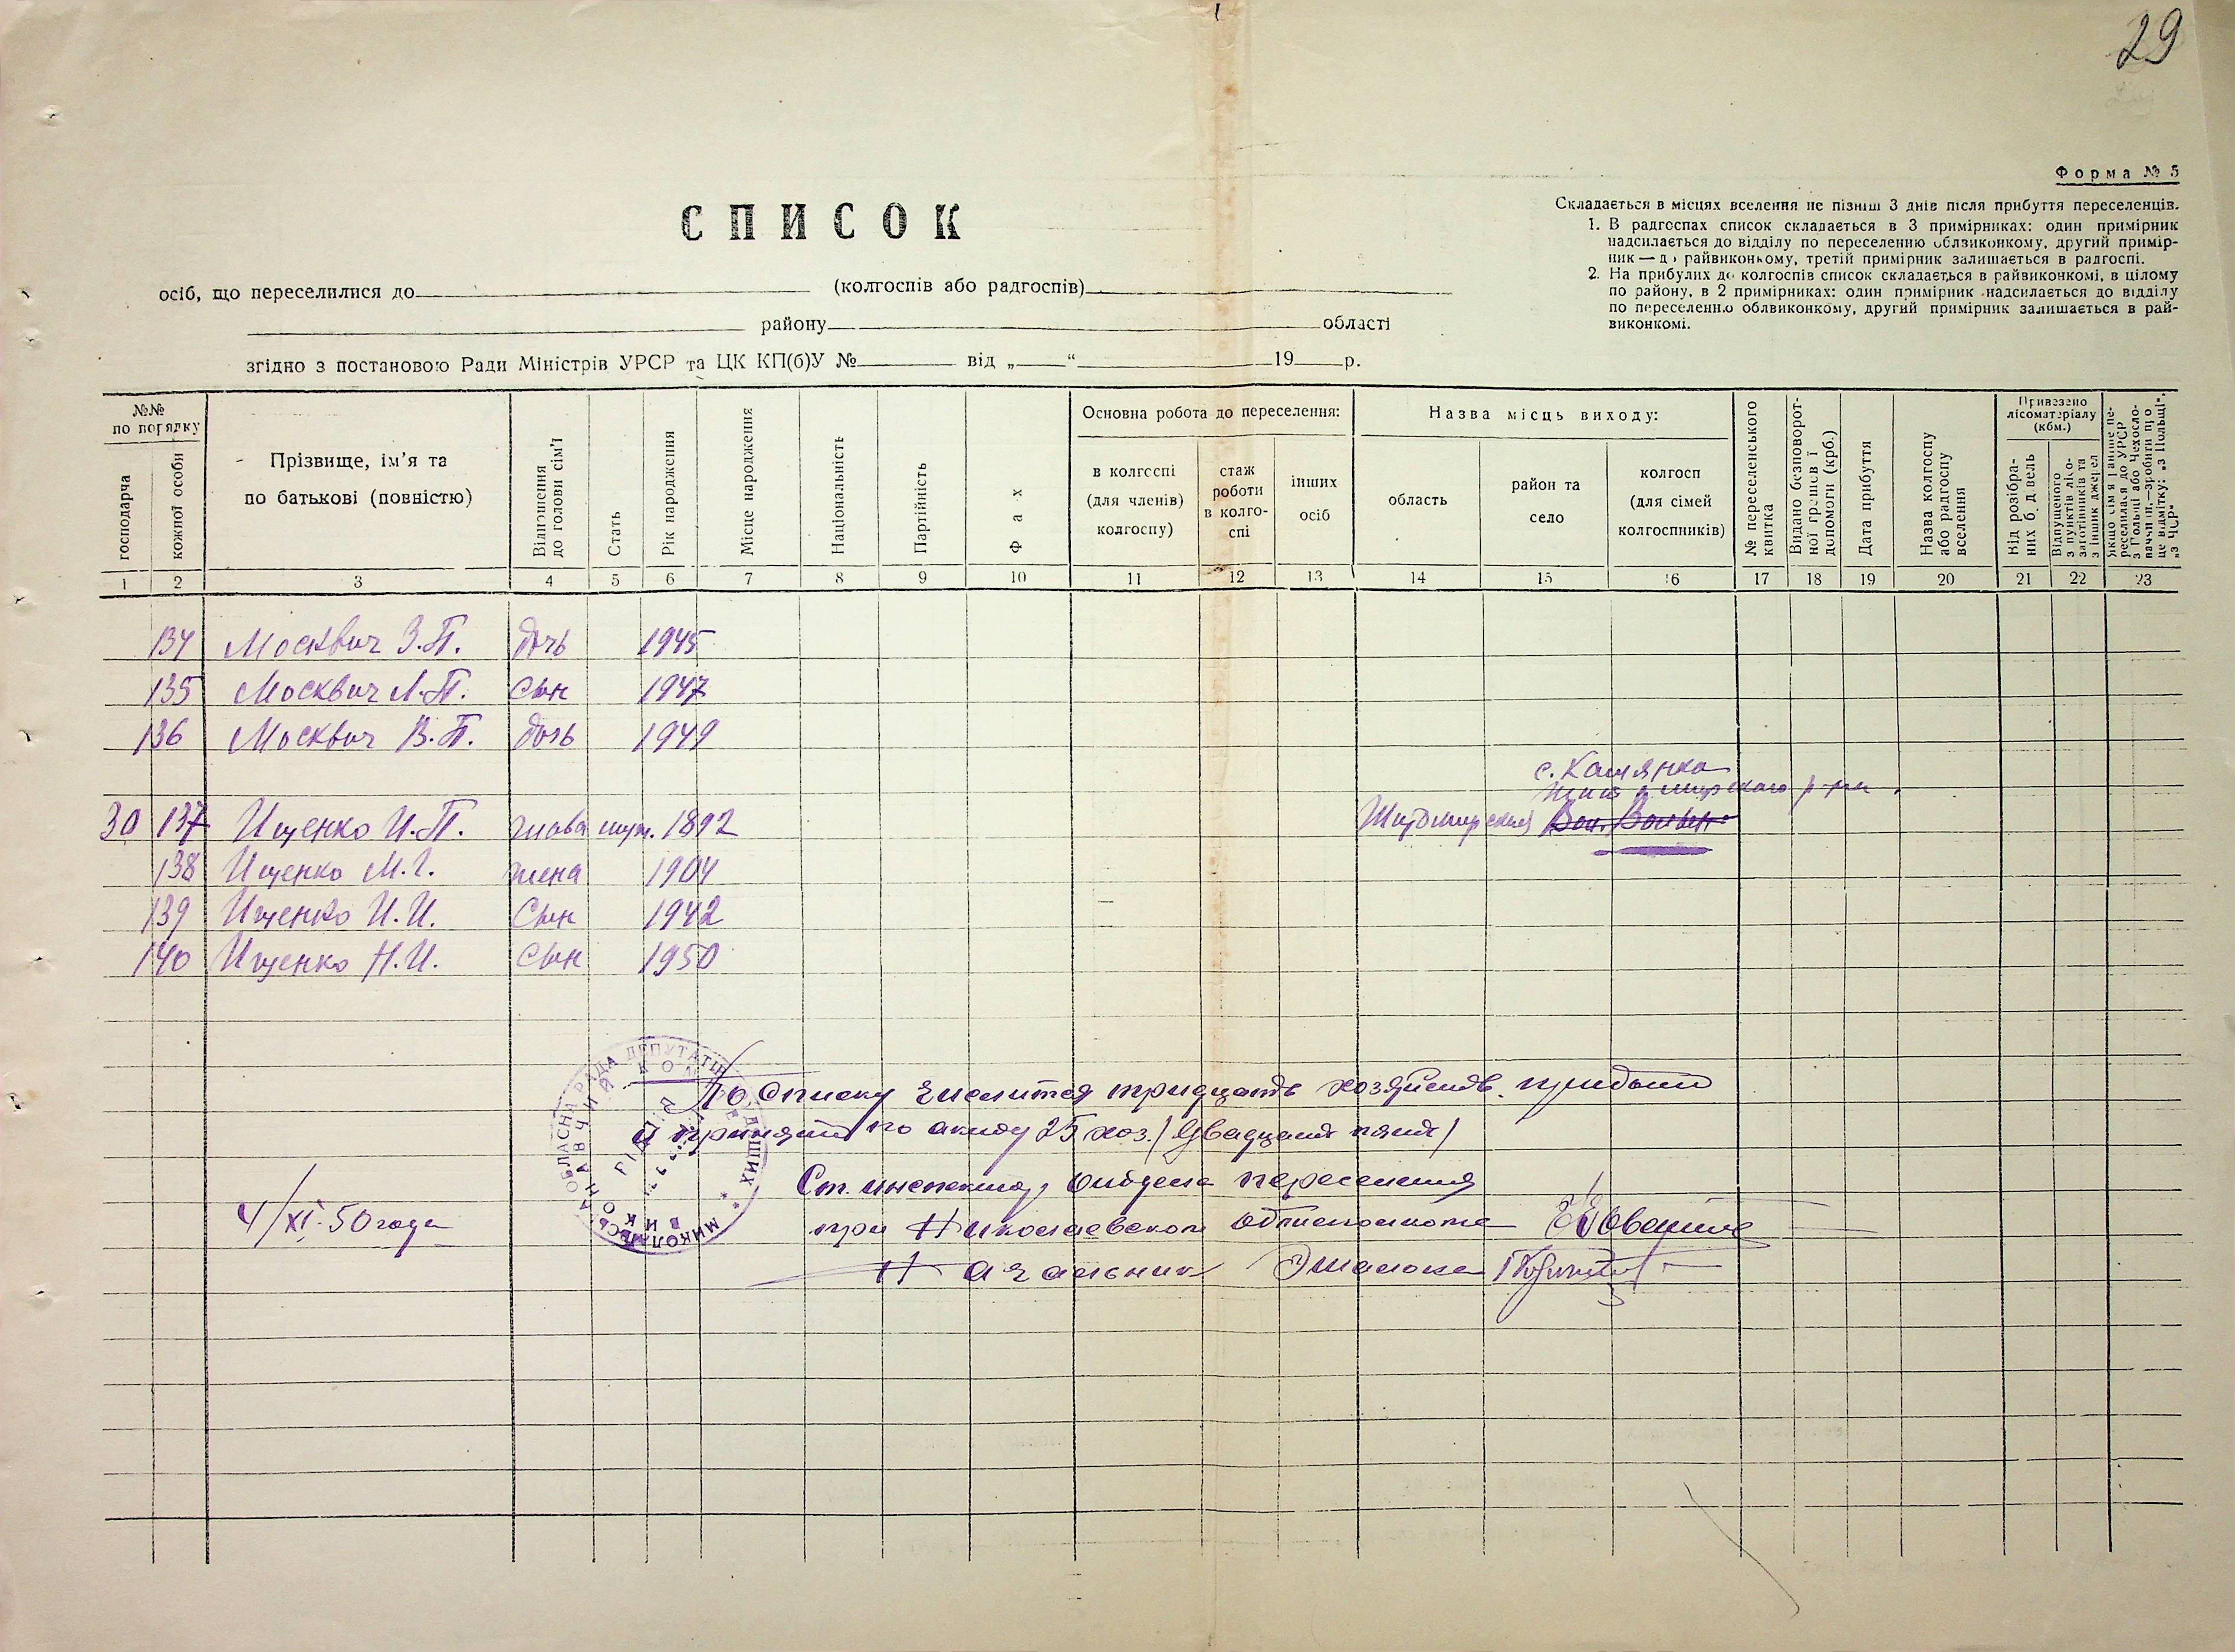 29
Форма № 5
Складається в місцях вселення не пізніш 3 днів після прибуття переселенців.
1. В радгоспах список складається в 3 примірниках: один примірник
надсилається до відділу по переселенню облвиконкому, другий примір-
ник — до райвиконкому, третій примірник залишається в радгоспі.
2. На прибулих до колгоспів список складається в райвиконкомі, в цілому
по району, в 2 примірниках: один примірник надсилається до відділу
по переселенню облвиконкому, другий примірник залишається в рай-
виконкомі.
СПИСОК
осіб, що переселилися до (колгоспів або радгоспів)
району області
згідно з постановою Ради Міністрів УРСР та ЦК КП(б)У № від „ “ 19 р.
№№ по порядку
господарча
кожної особи
Прізвище, ім’я та
по батькові (повністю)
Відношення
до голови сім’ї
Стать
Рік народження
Місце народження
Національність
Партійність
Фах
Основна робота до переселення:
в колгоспі
(для членів)
колгоспу)
стаж
роботи
в колго-
спі
інших
осіб
Назва місць виходу:
область
район та
село
колгосп
(для сімей
колгоспників)
№ переселенського
квитка
Видано безповорот-
ної грошевої
допомоги (крб.)
Дата прибуття
Назва колгоспу
або радгоспу
вселення
Привезено
лісоматеріалу
(кбм.)
Від розібра-
них будівель
Відпущеного
з пунктів лісо-
заготівників та
з інших джерел
Якщо сім’я раніше пе-
реселилася до УРСР
з Польщі або Чехосло-
ваччини,—зробити про
це відмітку: „з Польщі“,
„з ЧСР“
1 2 3 4 5 6 7 8 9 10 11 12 13 14 15 16 17 18 19 20 21 22 23
134 Москвич З.П. дочь 1945
135 Москвич Л.П. сын 1947
136 Москвич В.П. дочь 1949
с. Камянка
Житомирского р-на
30 137 Ищенко И.П. глава муж. 1892 Житомирская
138 Ищенко М.Г. жена 1904
139 Ищенко И.И. Сын 1942
140 Ищенко Н.И. Сын 1950
По списку числится тридцать хозяйств. прибыли
и приняты по акту 25 хоз. /двадцать пять/
Ст. инспектор отдела переселения
4/XI-50 года при Николаевском облисполкоме
Начальник Эшалона
МИКОЛАЇВСЬКА ОБЛАСНА РАДА ДЕПУТАТІВ ТРУДЯЩИХ
ВИКОНАВЧИЙ КОМІТЕТ